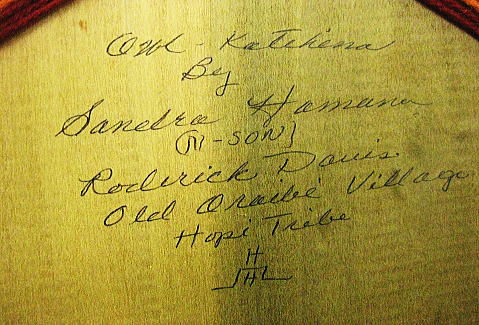 Owl - Katchina
By
Sandra Hamana
(N-SON)
Roderick Davis
Old Oraibi Village
Hopi Tribe
H
JHL